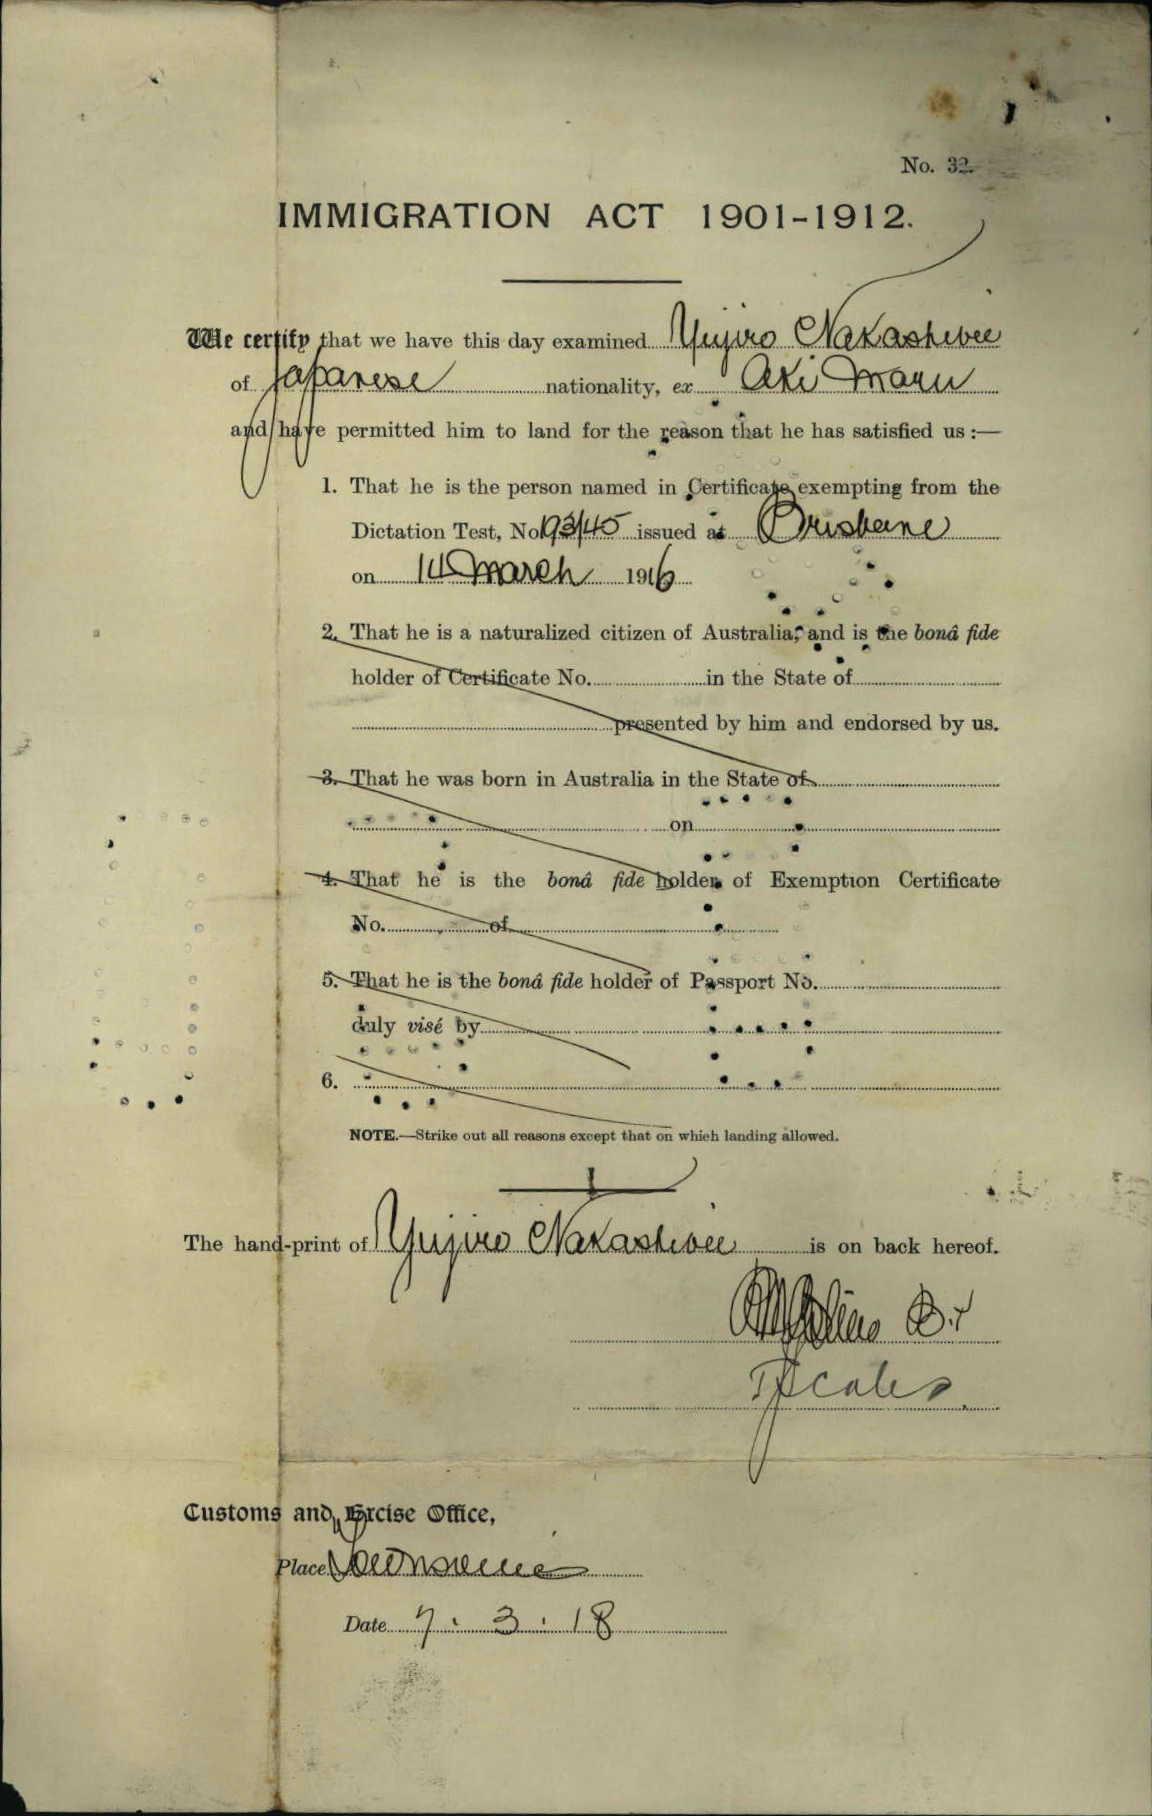 No. 32.
IMMIGRATION ACT 1901-1912.
We certify that we have this day examined Yujiro Nakashibee
of Japanese nationality, ex Aki Maru
and have permitted him to land for the reason that he has satisfied us :—
1. That he is the person named in Certificate exempting from the
Dictation Test, No 193/45 issued at Brisbane
on 14 March 1916
2. That he is a naturalized citizen of Australia, and is the bonâ fide
holder of Certificate No. in the State of
presented by him and endorsed by us.
3. That he was born in Australia in the State of
on
4. That he is the bonâ fide holder of Exemption Certificate
No. of
5. That he is the bonâ fide holder of Passport No.
duly visé by
6.
NOTE.—Strike out all reasons except that on which landing allowed.
The hand-print of Yujiro Nakashibee is on back hereof.
TScales
Customs and Excise Office,
Place Townsville
Date 7.3.18